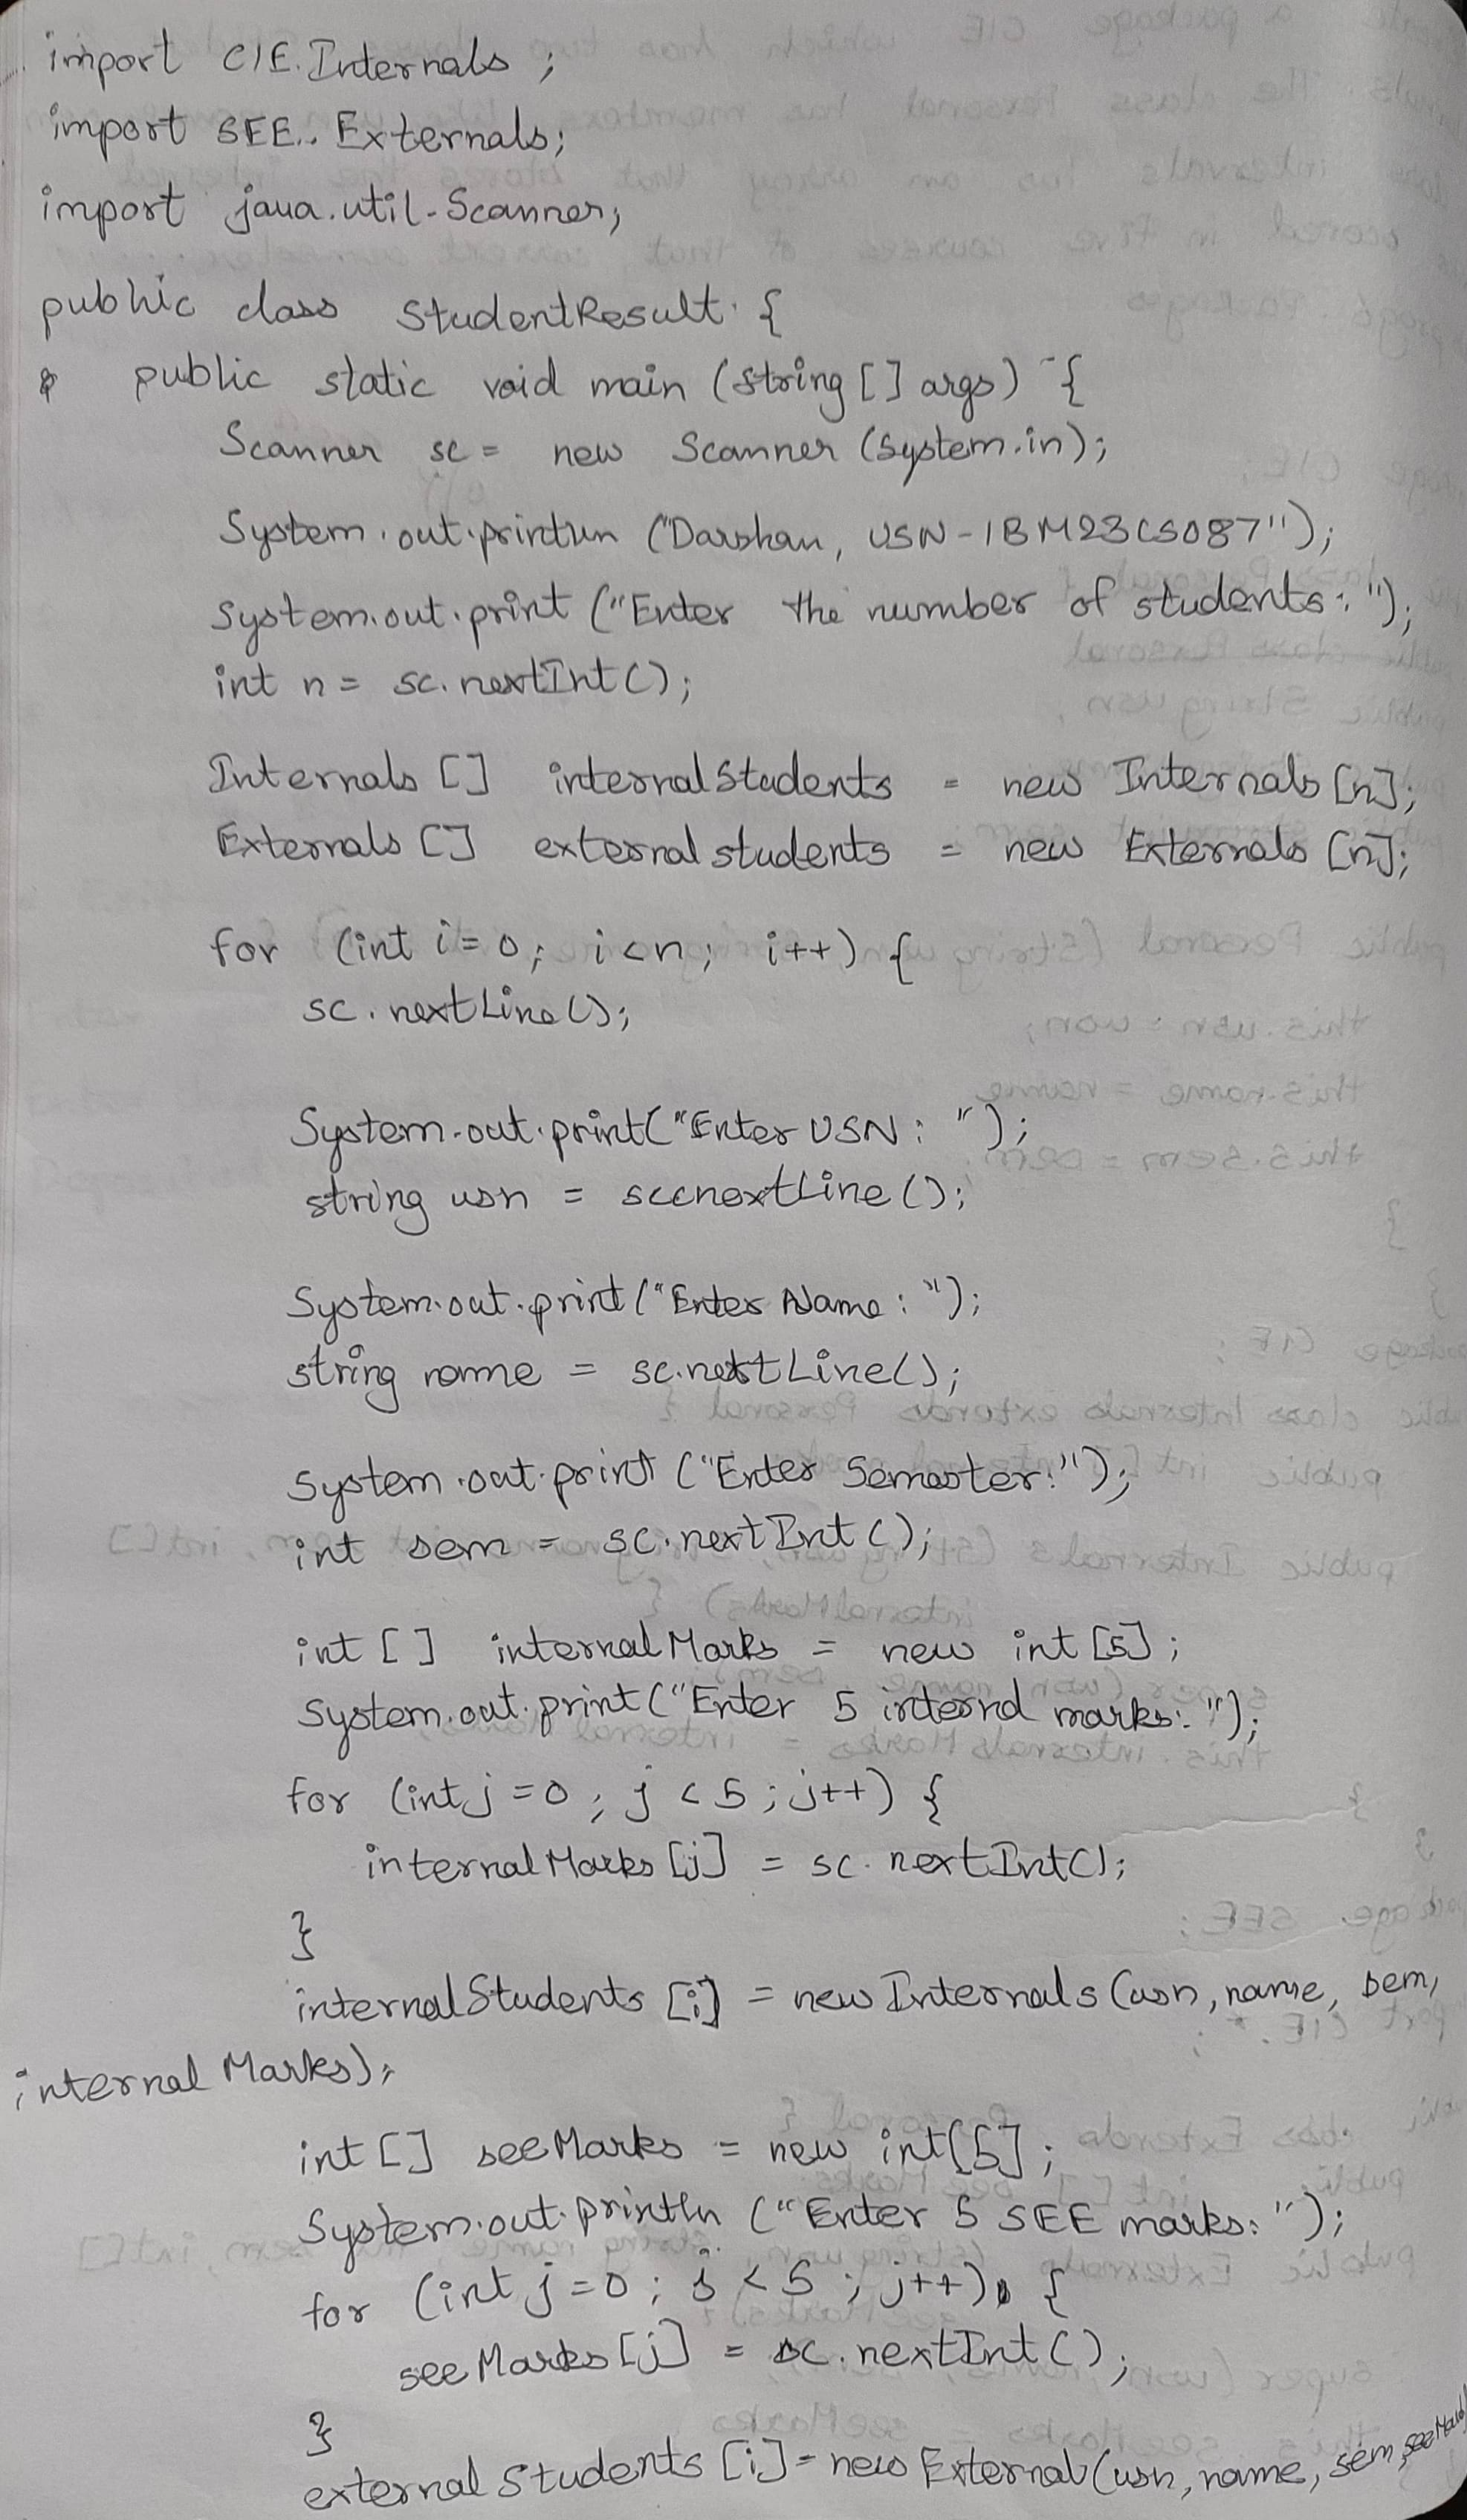 import CIE.Internals ;
import SEE.. Externals;
import java.util.Scanner;
public class StudentResult {
public static void main (String [] args) {
Scanner sc = new Scanner (System.in);
System.out.println ("Darshan, USN-1BM23CS087");
System.out.print ("Enter the number of students: ");
int n = sc.nextInt();
Internals [] internalStudents = new Internals [n];
Externals [] external students = new Externals [n];
for (int i=0; i<n; i++) {
sc.nextLine();
System.out.print("Enter USN: ");
string usn = sccnextLine();
System.out.print("Enter Name: ");
string name = sc.nextLine();
System.out.print ("Enter Semester:");
int sem = sc.nextInt();
int [ ] internalMarks = new int [5];
System.out.print("Enter 5 internd marks: ");
for (int j=0; j<5; j++) {
internalMarks [j] = sc.nextInt();
}
internalStudents [i] = new Internals (usn, name, sem,
internal Marks);
int [] seeMarks = new int[5];
System.out.println ("Enter 5 SEE marks: ");
for (int j=0; j<5; j++) {
seeMarks [j] = sc.nextInt();
}
external Students [i] = new External (usn, name, sem, seeMarks)